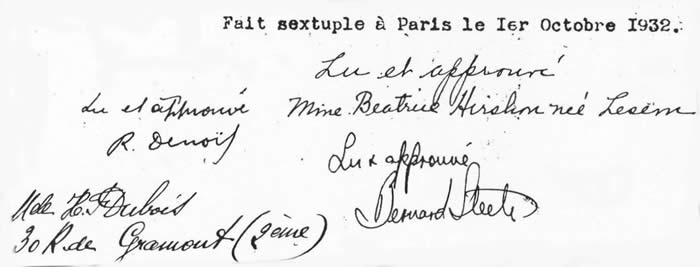 Fait sextuple à Paris le Ier Octobre I932.
Lu et approuvé
Mme. Beatrice Hirshon neé Lesem
Lu et approuvé
R. Denoël
Lu & approuvé
Bernard Steele
Dubois
30 R. de Gramont (2ème)